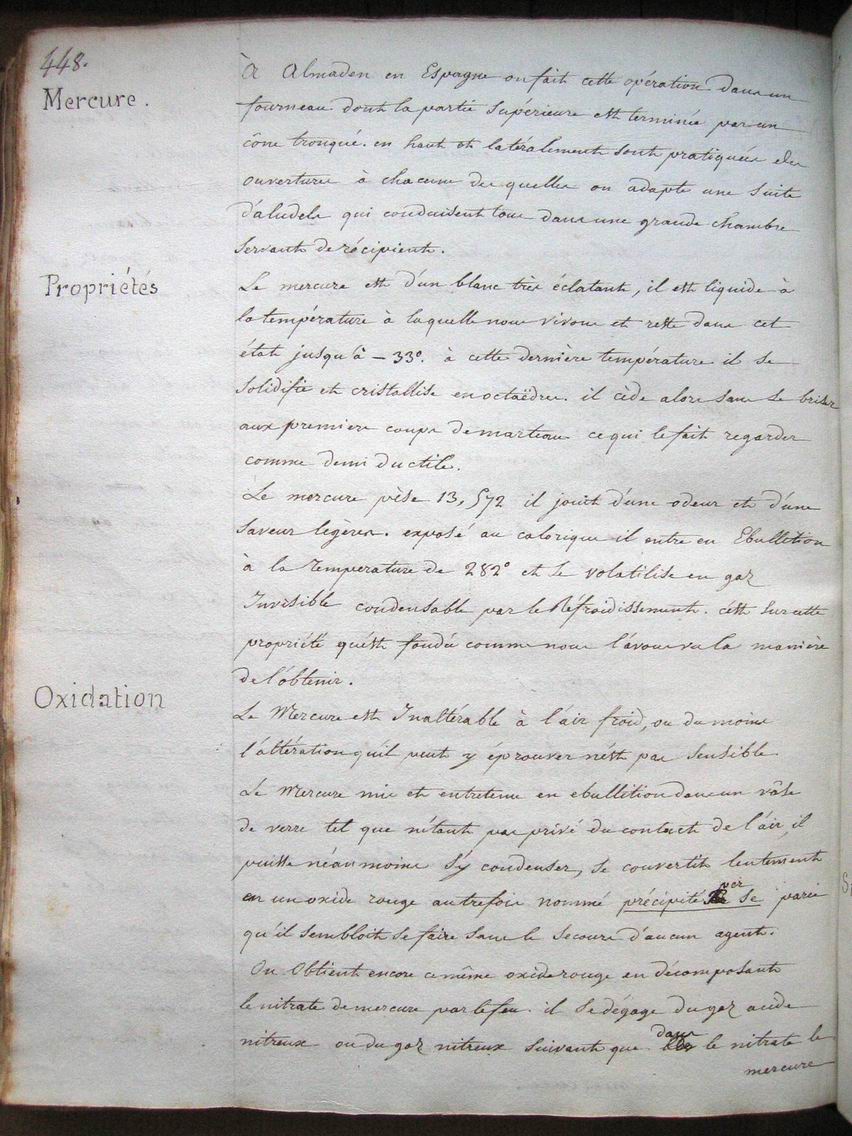 448.
Mercure.
À Almaden en Espagne on fait cette opération dans un
fourneau dont la partie Supérieure est terminée par un
cône tronqué. en haut et latéralement sont pratiquées des
ouvertures à chacune des quelles on adapte une Suite
d'aludels qui conduisent tous dans une grande chambre
Servant de récipient.
Propriétés
Le mercure est d'un blanc très éclatant, il est liquide à
la température à laquelle nous vivons et reste dans cet
état jusqu'à – 33°. à cette dernière température il se
Solidifie et cristallise en octaëdres. il cède alors sans se briser
aux premiers coups de marteau ce qui le fait regarder
comme demi ductile.
Le mercure pèse 13,572 il jouit d'une odeur et d'une
Saveur légères. exposé au calorique il entre en Ebullition
à la température de 282° et se volatilise en gaz
Invisible condensable par le Réfroidissement. c'est Sur cette
propriété qu'est fondée comme nous l'avons vu la manière
de l'obtenir.
Oxidation
Le Mercure est Inaltérable à l'air froid, ou du moins
l'altération qu'il peut y éprouver n'est pas Sensible.
Le Mercure mis et entretenu en ebullition dans un vâse
de verre tel que n'étant pas privé du contact de l'air, il
puisse néanmoins S'y condenser, se convertit lentement
en un oxide rouge autrefois nommé précipité per se parce
qu'il Sembloit se faire Sans le Secours d'aucun agent.
On Obtient encore ce même oxide rouge en décomposant
le nitrate de mercure par le feu. il se dégage du gaz acide
nitreux ou du gaz nitreux Suivant que dans le nitrate le
mercure